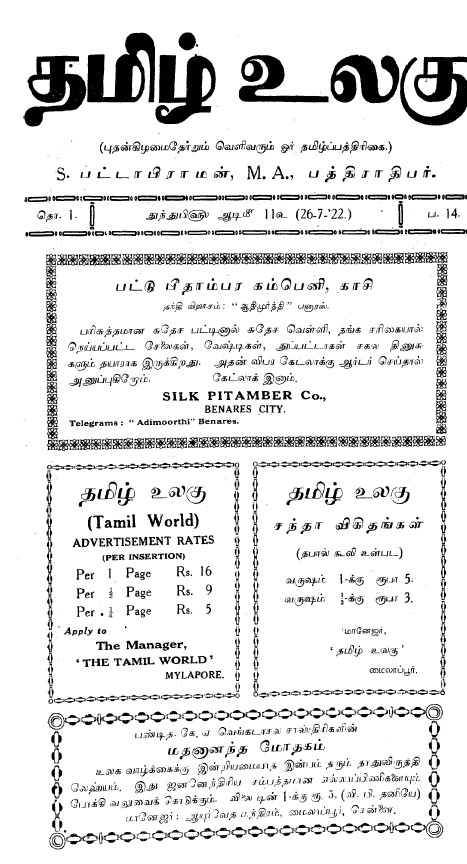 தமிழ் உலகு
(புதன்கிழமைதோறும் வெளிவரும் ஓர் தமிழ்ப்பத்திரிகை.)
S. பட்டாபிராமன், M. A., பத்திராதிபர்.
தொ. 1. துந்துபிஸ்ரீ ஆடிமீ 11உ (26-7-'22.) ப. 14.
பட்டு பீதாம்பர கம்பெனி, காசி
தந்தி விலாசம்: "ஆதிமூர்த்தி" பனாரஸ்.
பரிசுத்தமான சுதேச பட்டினால் சுதேச வெள்ளி, தங்க சரிகையால்
நெய்யப்பட்ட சேலைகள், வேஷ்டிகள், துப்பட்டாகள் சகல தினுசு
களும் தயாராக இருக்கிறது. அதன் விபர கேடலாக்கு ஆர்டர் செய்தால்
அனுப்புகிறோம். கேட்லாக் இனாம்.
SILK PITAMBER Co.,
BENARES CITY.
Telegrams: "Adimoorthi" Benares.
தமிழ் உலகு
(Tamil World)
ADVERTISEMENT RATES
(PER INSERTION)
Per 1 Page Rs. 16
Per ½ Page Rs. 9
Per ¼ Page Rs. 5
Apply to
The Manager,
'THE TAMIL WORLD'
MYLAPORE.
தமிழ் உலகு
சந்தா விகிதங்கள்
(தபால் கூலி உள்பட)
வருஷம் 1-க்கு ரூபா 5.
வருஷம் ½-க்கு ரூபா 3.
மானேஜர்,
'தமிழ் உலகு'
மைலாப்பூர்.
பண்டித கே. வெங்கடாசல சாஸ்திரிகளின்
மதனானந்த மோதகம்
உலக வாழ்க்கைக்கு இன்றியமையாத இன்பம் தரும் தாதுவிருத்தி
லேஹ்யம். இது ஜனனேந்திரிய சம்பந்தமான எல்லாப்பிணிகளையும்
போக்கி வலுவைக் கொடுக்கும். விலை டின் 1-க்கு ரூ. 5. (வி. பி. தனியே)
மானேஜர்: ஆயுர்வேத மந்திரம், மைலாப்பூர், சென்னை.